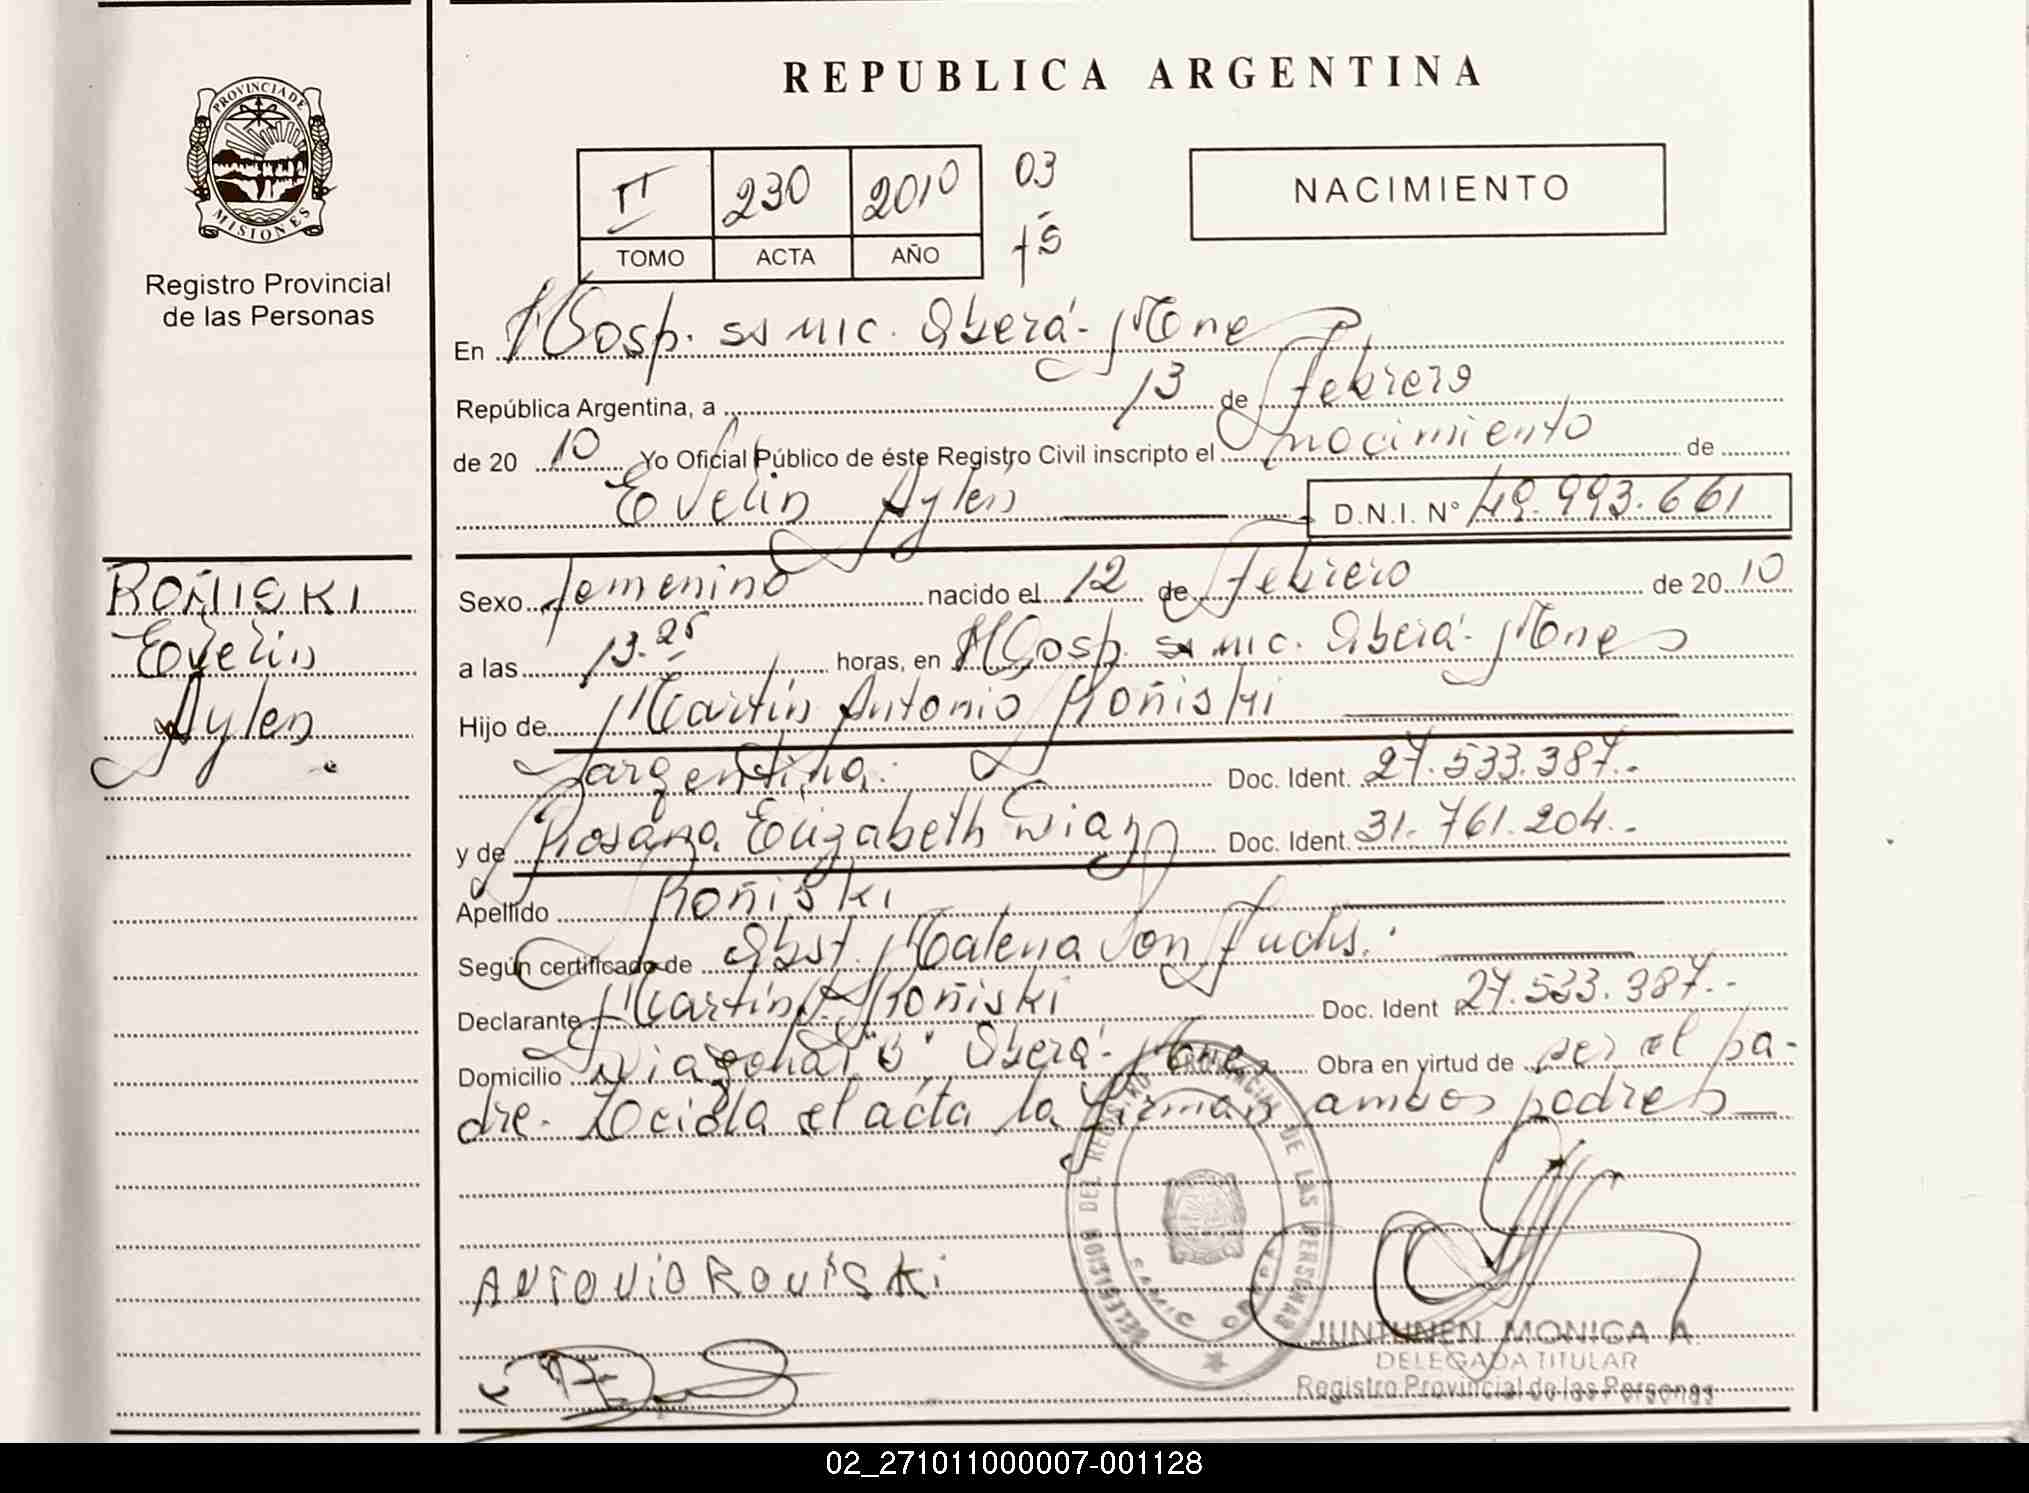 REPUBLICA ARGENTINA
PROVINCIA DE
MISIONES
Registro Provincial
de las Personas
II 230 2010 03
TOMO ACTA AÑO
NACIMIENTO
En Hosp. ss mic. Oberá - Mnes
República Argentina, a 13 de Febrero
de 20 10 Yo Oficial Público de éste Registro Civil inscripto el nacimiento de
Evelin Aylen D.N.I. Nº 49.993.661
ROÑISKI
Evelin
Aylen
Sexo femenino nacido el 12 de Febrero de 20 10
a las 13.25 horas, en Hosp. ss mic. Oberá - Mnes
Hijo de Martín Antonio Roñiski
argentina. Doc. Ident. 27.533.387.-
y de Rosana Elizabeth Diaz Doc. Ident. 31.761.204.-
Apellido Roñiski
Según certificado de Obst. Malena Von Fuchs.
Declarante Martín A. Roñiski Doc. Ident 27.533.387.-
Domicilio Diagonal "B" Oberá - Mnes Obra en virtud de ser el pa-
dre. Leída el acta la firman ambos padres
DEL REGISTRO PROVINCIAL DE LAS PERSONAS
ANTONIO ROÑISKI
JUNTUNEN MONICA A.
DELEGADA TITULAR
Registro Provincial de las Personas
02_271011000007-001128